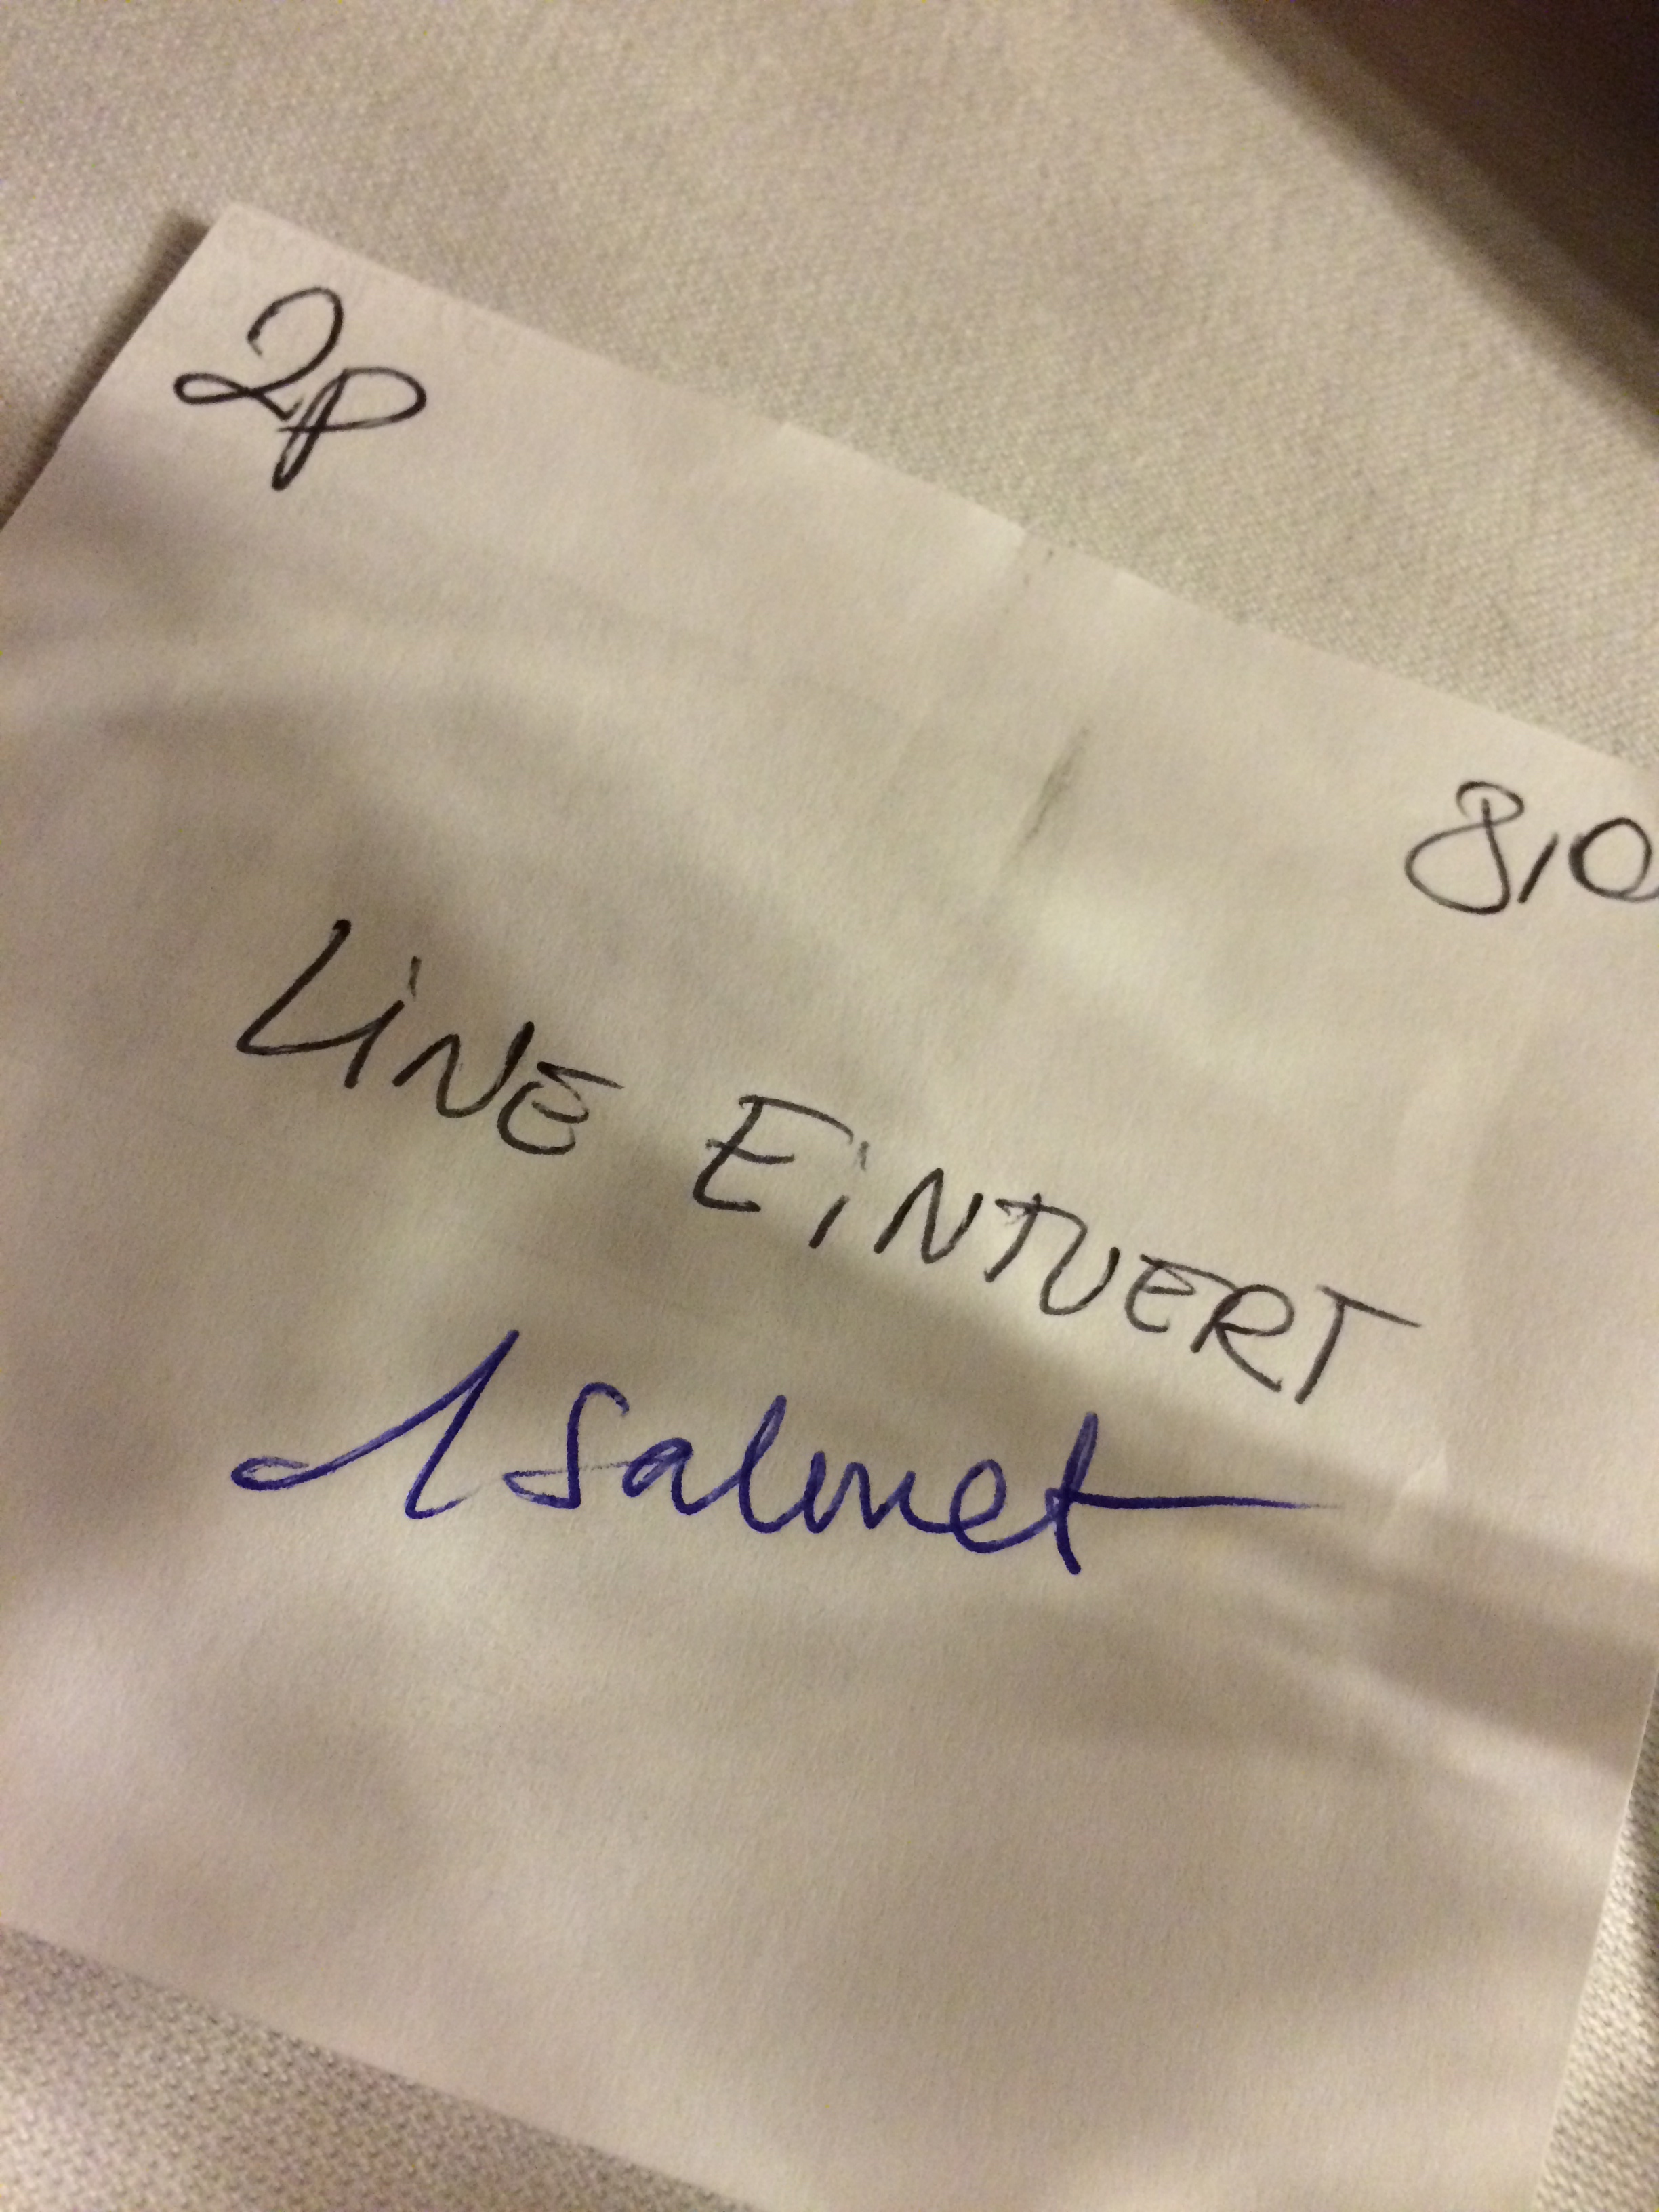 2P
8,0
LiNE EiNTVERT
1 Salmet